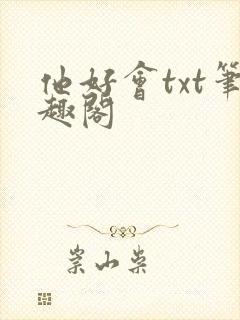 他好會txt筆
趣閣
崇山柴